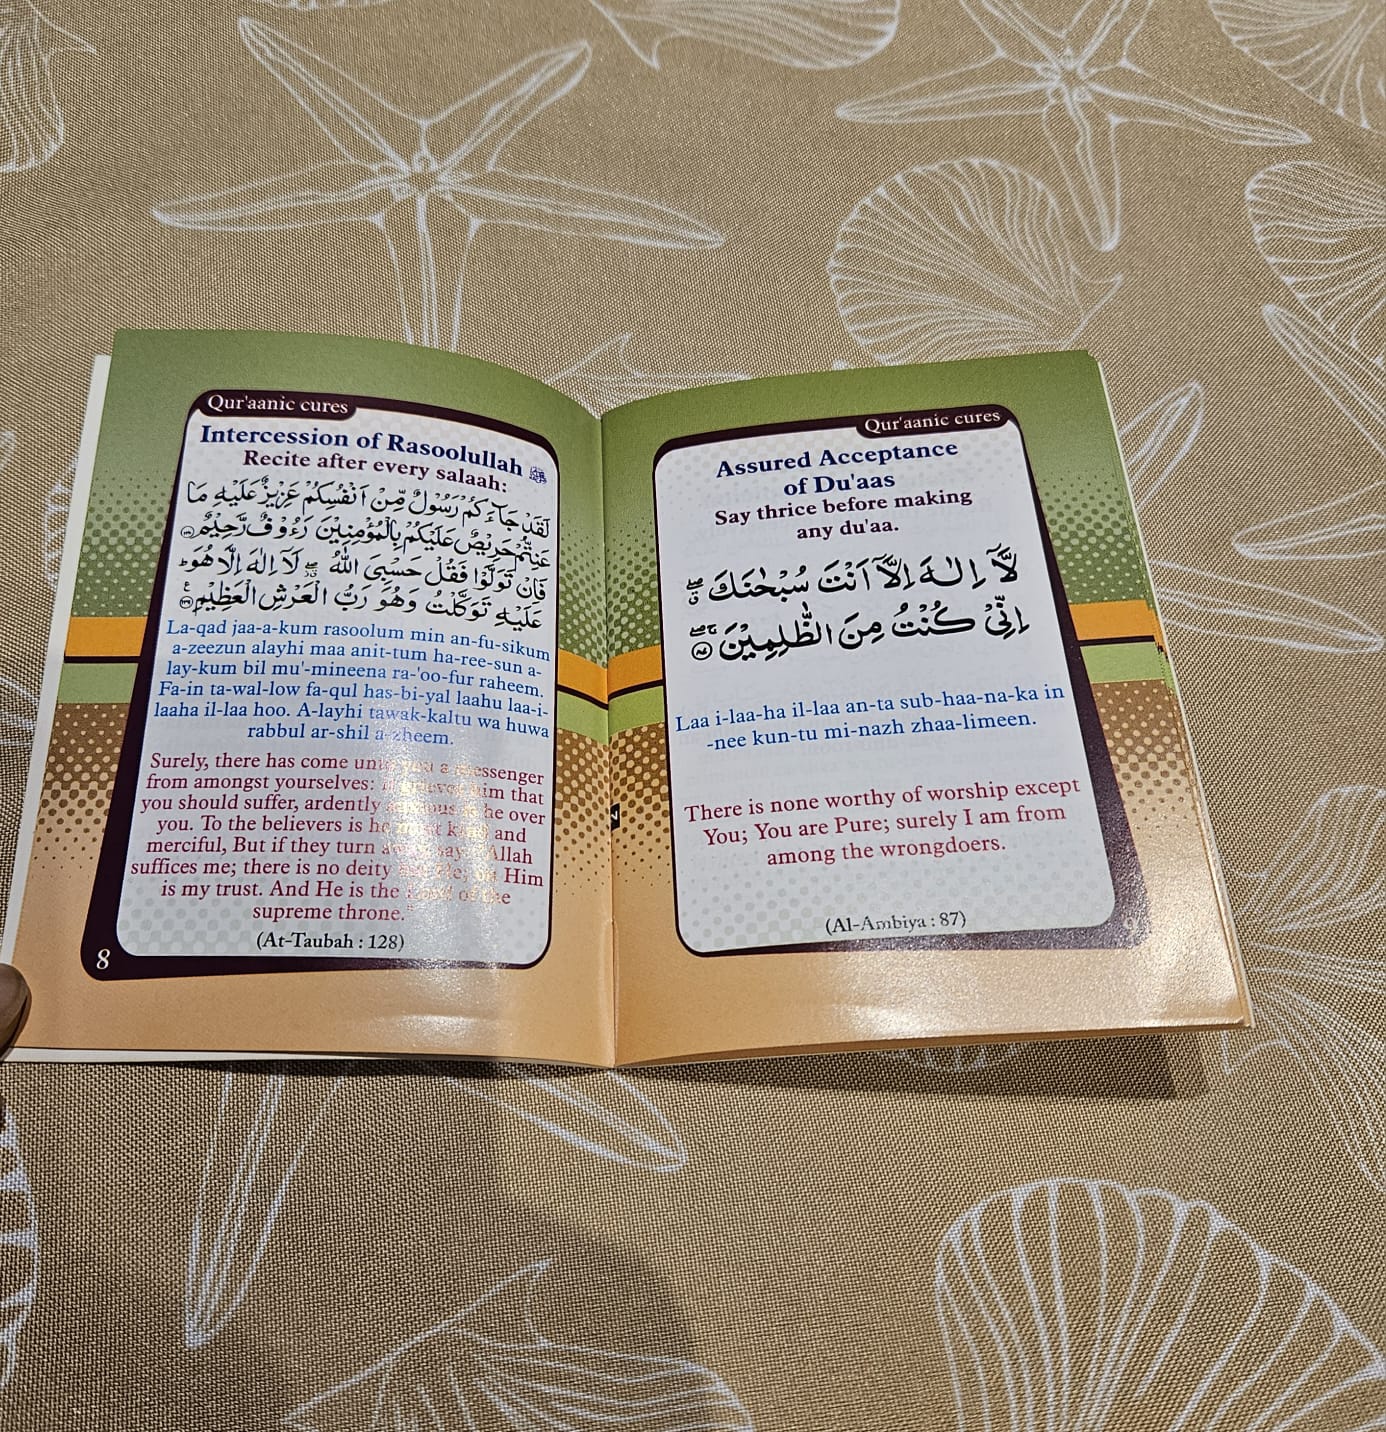 Qur'aanic cures
Intercession of Rasoolullah ﷺ
Recite after every salaah:
لَقَدْ جَآءَكُمْ رَسُوْلٌ مِّنْ اَنْفُسِكُمْ عَزِيْزٌ عَلَيْهِ مَا
عَنِتُّمْ حَرِيْصٌ عَلَيْكُمْ بِالْمُؤْمِنِيْنَ رَءُوْفٌ رَّحِيْمٌ
فَاِنْ تَوَلَّوْا فَقُلْ حَسْبِيَ اللّٰهُ لَآ اِلٰهَ اِلَّا هُوَ
عَلَيْهِ تَوَكَّلْتُ وَهُوَ رَبُّ الْعَرْشِ الْعَظِيْمِ
La-qad jaa-a-kum rasoolum min an-fu-sikum
a-zeezun alayhi maa anit-tum ha-ree-sun a-
lay-kum bil mu'-mineena ra-'oo-fur raheem.
Fa-in ta-wal-low fa-qul has-bi-yal laahu laa-i-
laaha il-laa hoo. A-layhi tawak-kaltu wa huwa
rabbul ar-shil a-zheem.
Surely, there has come you a messenger
from amongst yourselves: him that
you should suffer, ardently he over
you. To the believers is and
merciful, But if they turn Allah
suffices me; there is no deity Him
is my trust. And He is the of the
supreme throne."
(At-Taubah : 128)
8
Qur'aanic cures
Assured Acceptance
of Du'aas
Say thrice before making
any du'aa.
لَآ اِلٰهَ اِلَّآ اَنْتَ سُبْحٰنَكَ
اِنِّيْ كُنْتُ مِنَ الظّٰلِمِيْنَ
Laa i-laa-ha il-laa an-ta sub-haa-na-ka in
-nee kun-tu mi-nazh zhaa-limeen.
There is none worthy of worship except
You; You are Pure; surely I am from
among the wrongdoers.
(Al-Ambiya : 87)
9